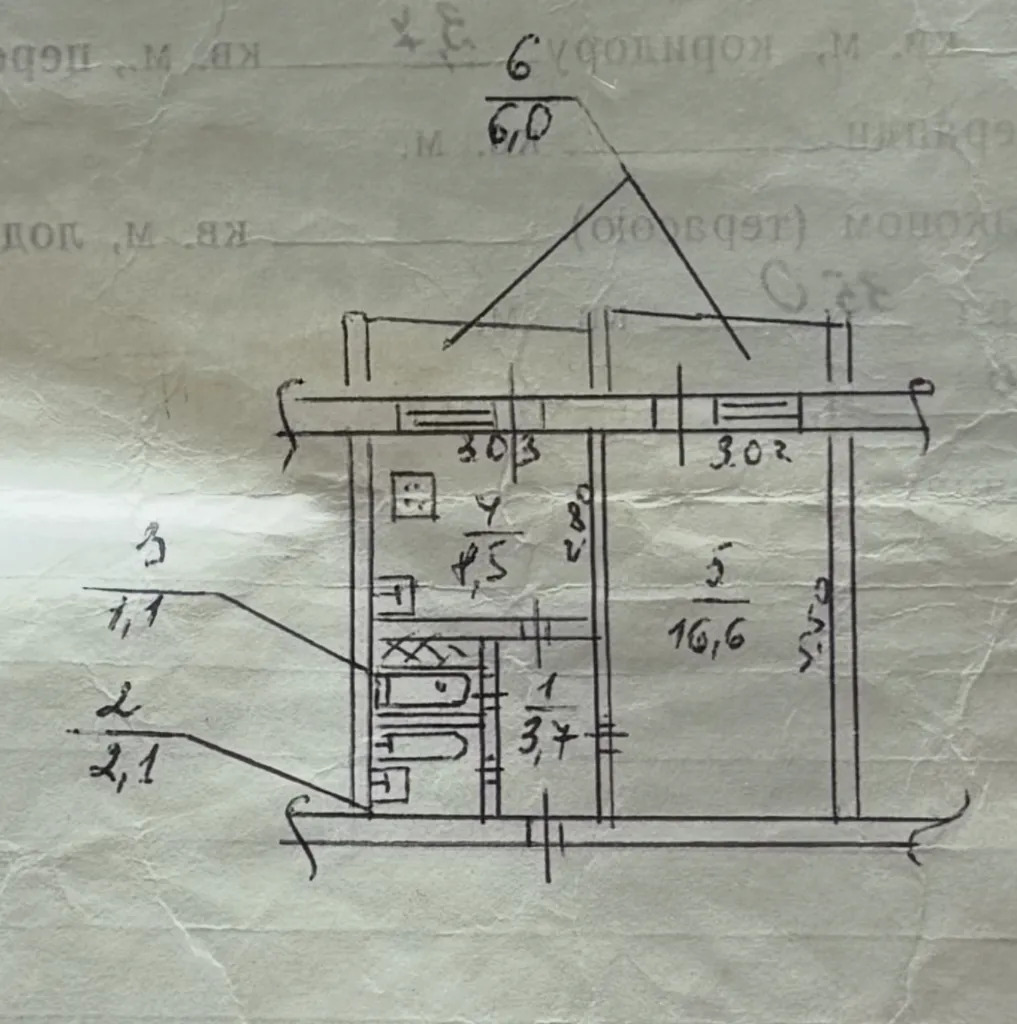 кв. м, коридору 3,7 кв. м.,
кв. м.
(терасою) кв. м, лод
35,0
6
6,0
3.03
3.02
4
2.80
3
1,1
5
16,6
5.50
1
3,7
2
2,1